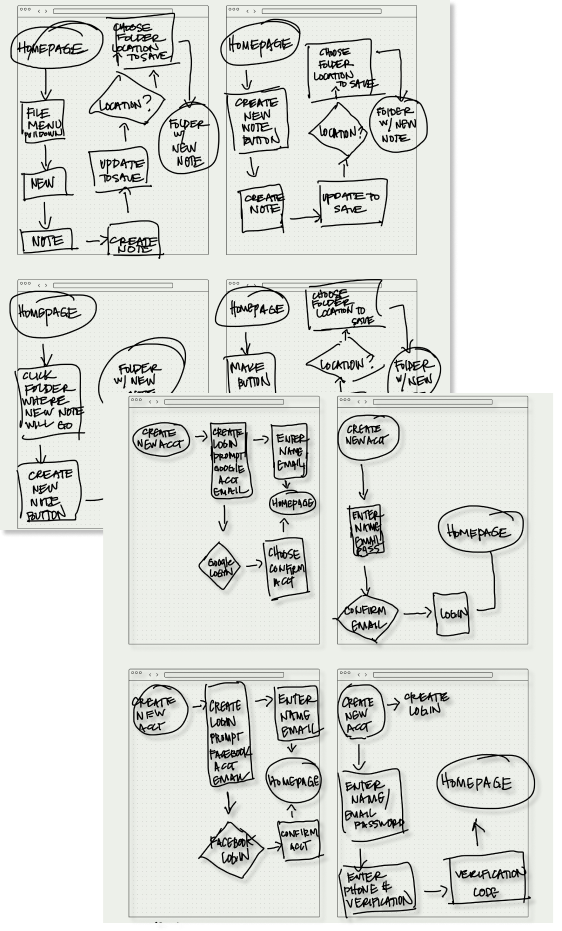 HOMEPAGE
FILE
MENU
NEW
NOTE
CREATE
NOTE
UPDATE
TO SAVE
LOCATION?
CHOOSE
FOLDER
LOCATION
TO SAVE
FOLDER
W/ NEW
NOTE
HOMEPAGE
CREATE
NEW
NOTE
BUTTON
CREATE
NOTE
UPDATE TO
SAVE
LOCATION?
CHOOSE
FOLDER
LOCATION
TO SAVE
FOLDER
W/ NEW
NOTE
HOMEPAGE
CLICK
FOLDER
WHERE
NEW NOTE
WILL GO
CREATE
NEW
NOTE
BUTTON
FOLDER
W/ NEW
HOMEPAGE
MAKE
BUTTON
LOCATION?
CHOOSE
FOLDER
LOCATION TO
SAVE
FOLDER
W/ NEW
CREATE
NEW ACCT
CREATE
LOGIN
PROMPT
GOOGLE
ACCT
EMAIL
ENTER
NAME
EMAIL
HOMEPAGE
GOOGLE
LOGIN
CHOOSE
CONFIRM
ACCT
CREATE
NEW ACCT
ENTER
NAME
EMAIL
PASS
CONFIRM
EMAIL
LOGIN
HOMEPAGE
CREATE
NEW
ACCT
CREATE
LOGIN
PROMPT
FACEBOOK
ACCT
EMAIL
ENTER
NAME
EMAIL
HOMEPAGE
FACEBOOK
LOGIN
CONFIRM
ACCT
CREATE
NEW
ACCT
CREATE
LOGIN
ENTER
NAME/
EMAIL
PASSWORD
ENTER
PHONE &
VERIFICATION
VERIFICATION
CODE
HOMEPAGE